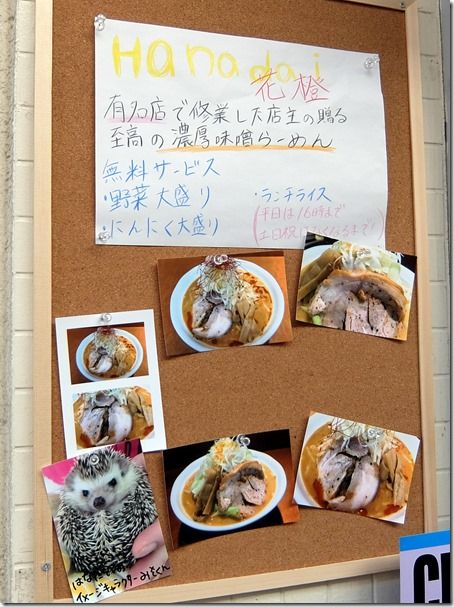 Hanadai
花橙
有名店で修業した店主の贈る
至高の濃厚味噌らーめん
無料サービス
・野菜大盛り
・にんにく大盛り
・ランチライス
(平日は16時まで
土日祝はなくなるまで!)
イメージキャラクターみそくん